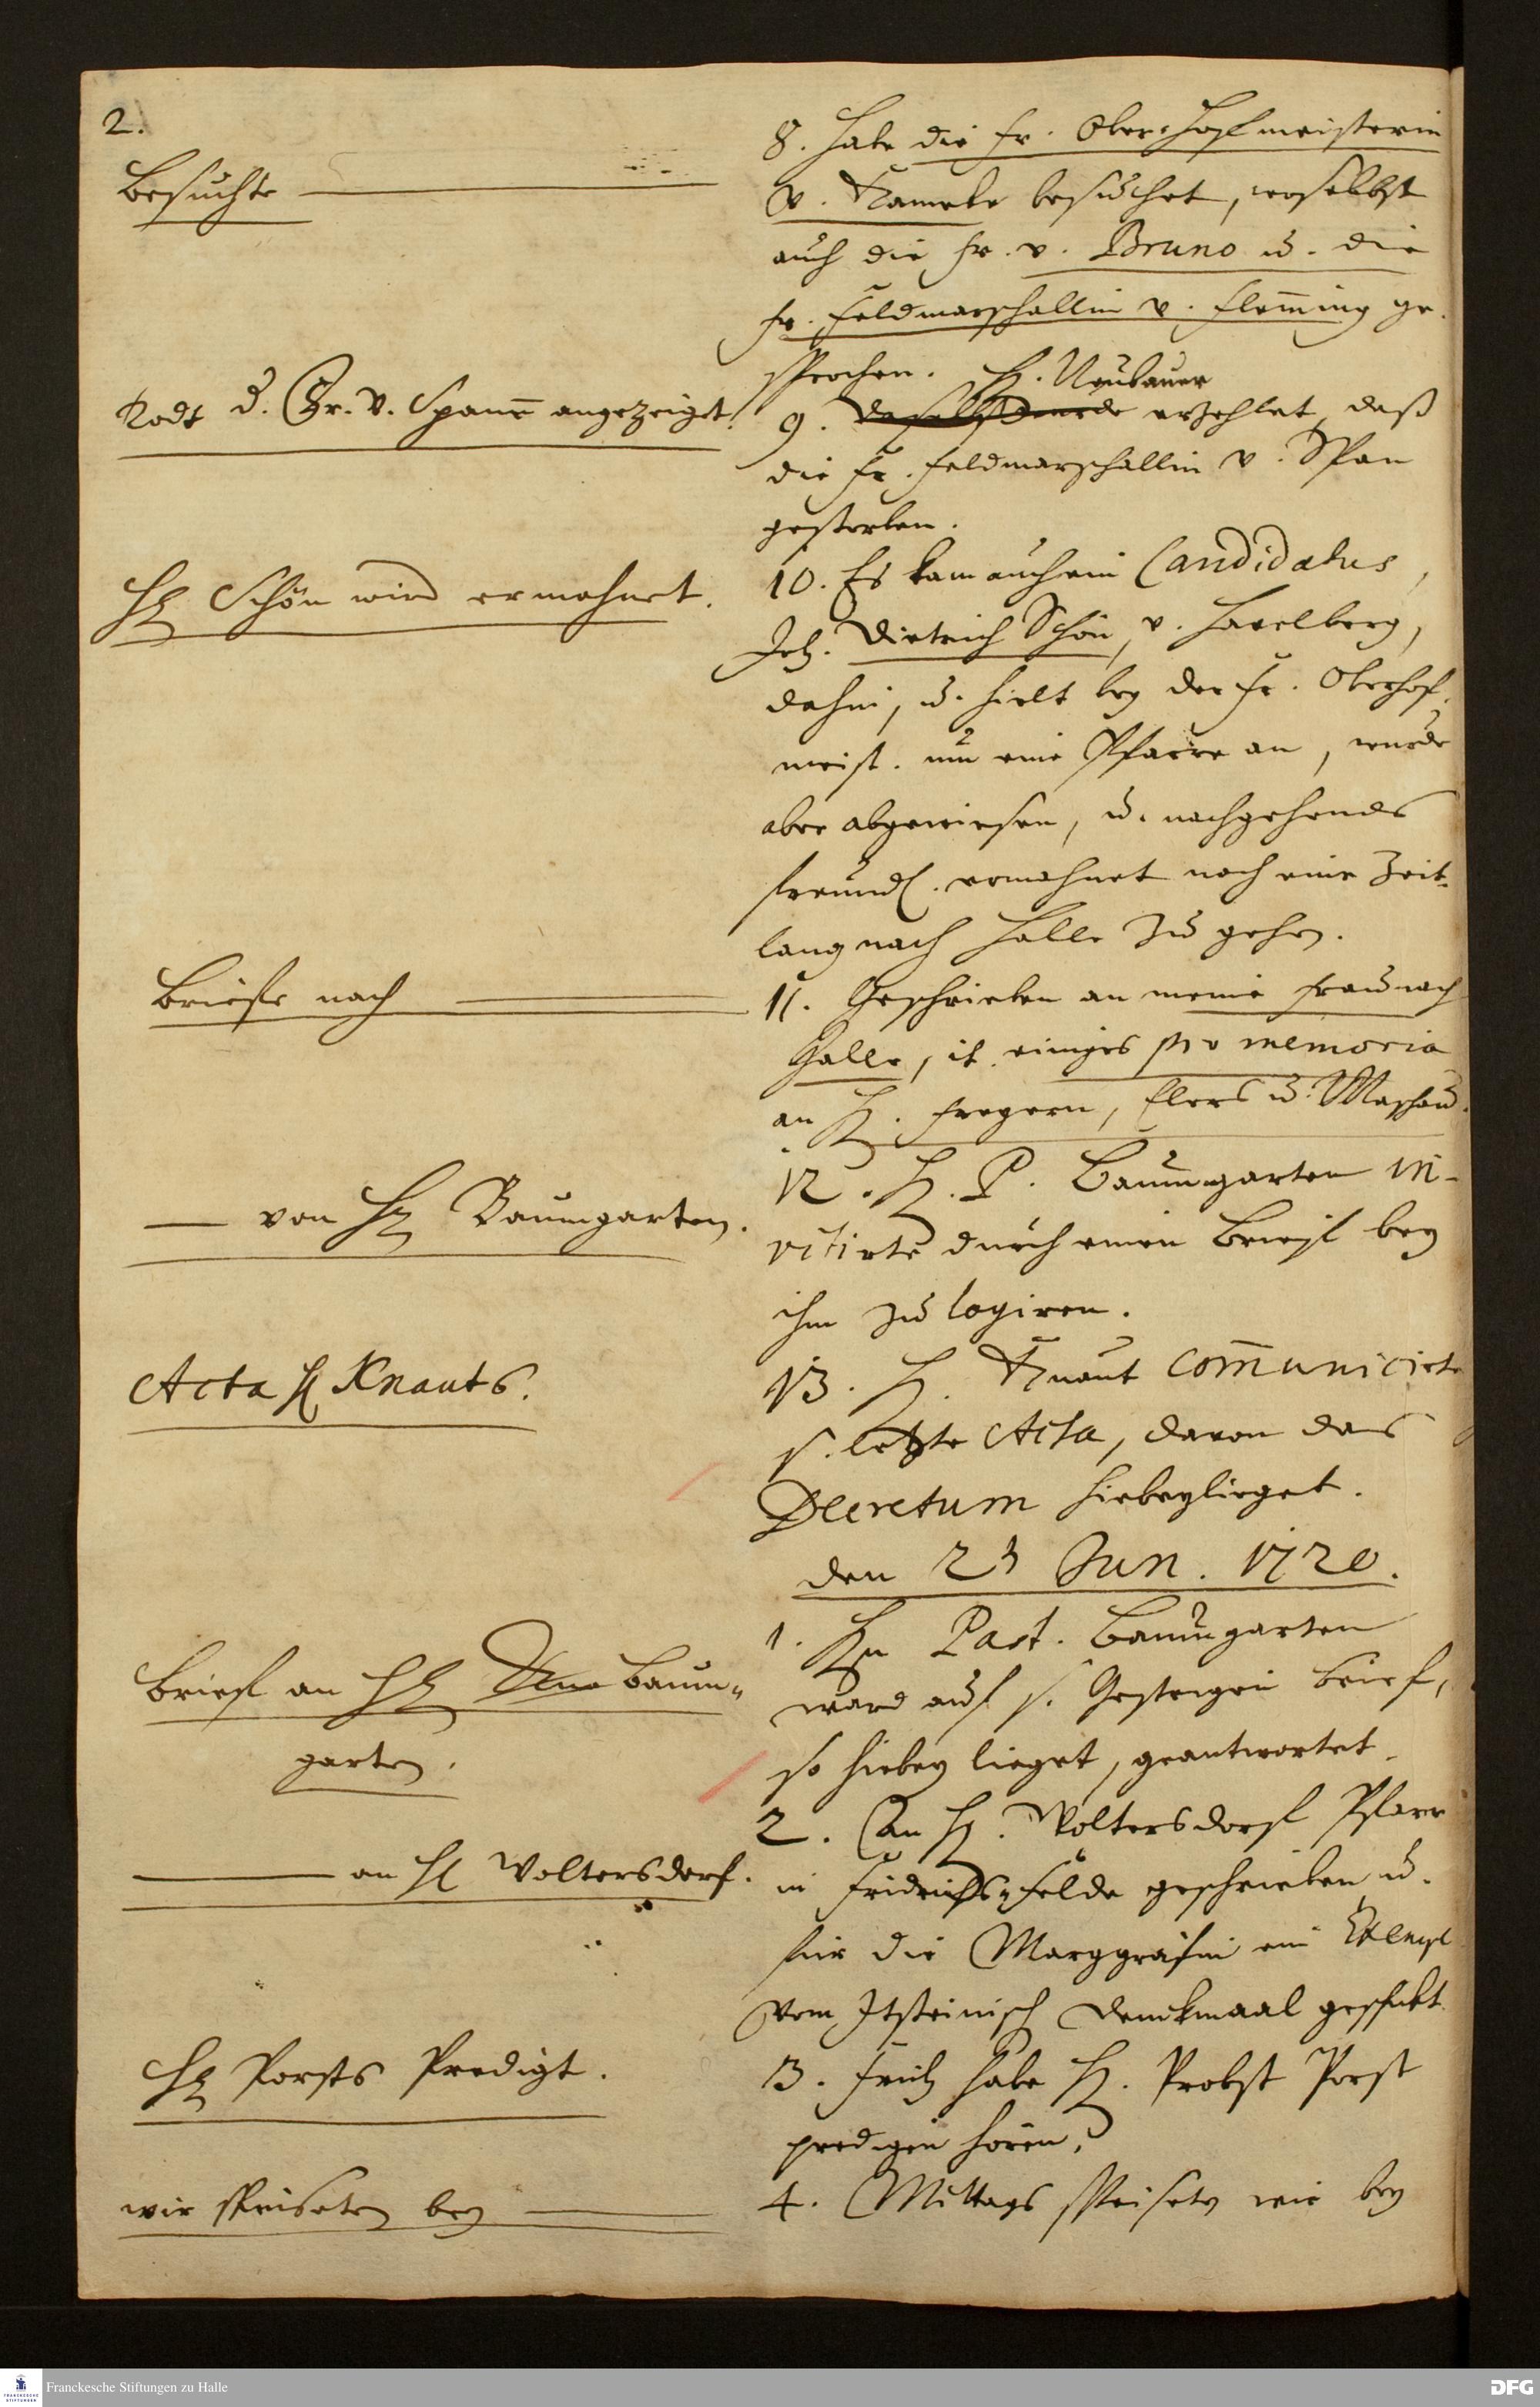 2.
Besuchte
8. Habe die Fr. Ober-Hoffmeisterin
v. Kameke besuchet, woselbst
auch die Fr. v. Bruno u. die
Fr. Feldmarschallin v. Flem̄ing ge-
sprochen.
Todt d. Gr. v. Spann angezeiget.
H. Neubauer
9. daselbst wurde erzehlet, daß
die Fr. Feldmarschallin v. Span
gestorben.
H Schön wird ermahnet.
10. Es kam auch ein Candidatus,
Joh. Dietrich Schön, v. Havelberg,
dahin, u. hielt bey der Fr. Oberhof-
meist. um eine Pfarre an, wurde
aber abgewiesen, u. nachgehends
freundl. ermahnet noch eine Zeit-
lang nach Halle zu gehen.
Briefe nach
11. Geschrieben an meine Frau nach
Halle, it. einiges pro memoria
an H. Freyern, Elers u.
— von H Baumgarten.
12. H. P. Baumgarten in-
vitirte durch einen Brieff bey
ihm zu logiren.
Acta H Knauts.
13. H. Knaut com̄unicirte
s. letzte Acta, davon das
Decretum hiebeylieget.
den 23 Jun. 1720.
Brieff an H Baum-
garten.
1. Hn Past. Baumgarten
ward auf s. Gestrigen Brief,
so hiebey lieget, geantwortet.
— an H Woltersdorf.
2. An H. Woltersdorff Pfarr
in Fridrichs-Felde geschrieben u.
für die Marggräfin ein Exempl
vom Itsteinisch Denckmaal geschickt.
H Porsts Predigt.
3. Früh habe H. Probst Porst
predigen hören.
wir speiseten bey
4. Mittags speiseten wir bey
Franckesche Stiftungen zu Halle
DFG